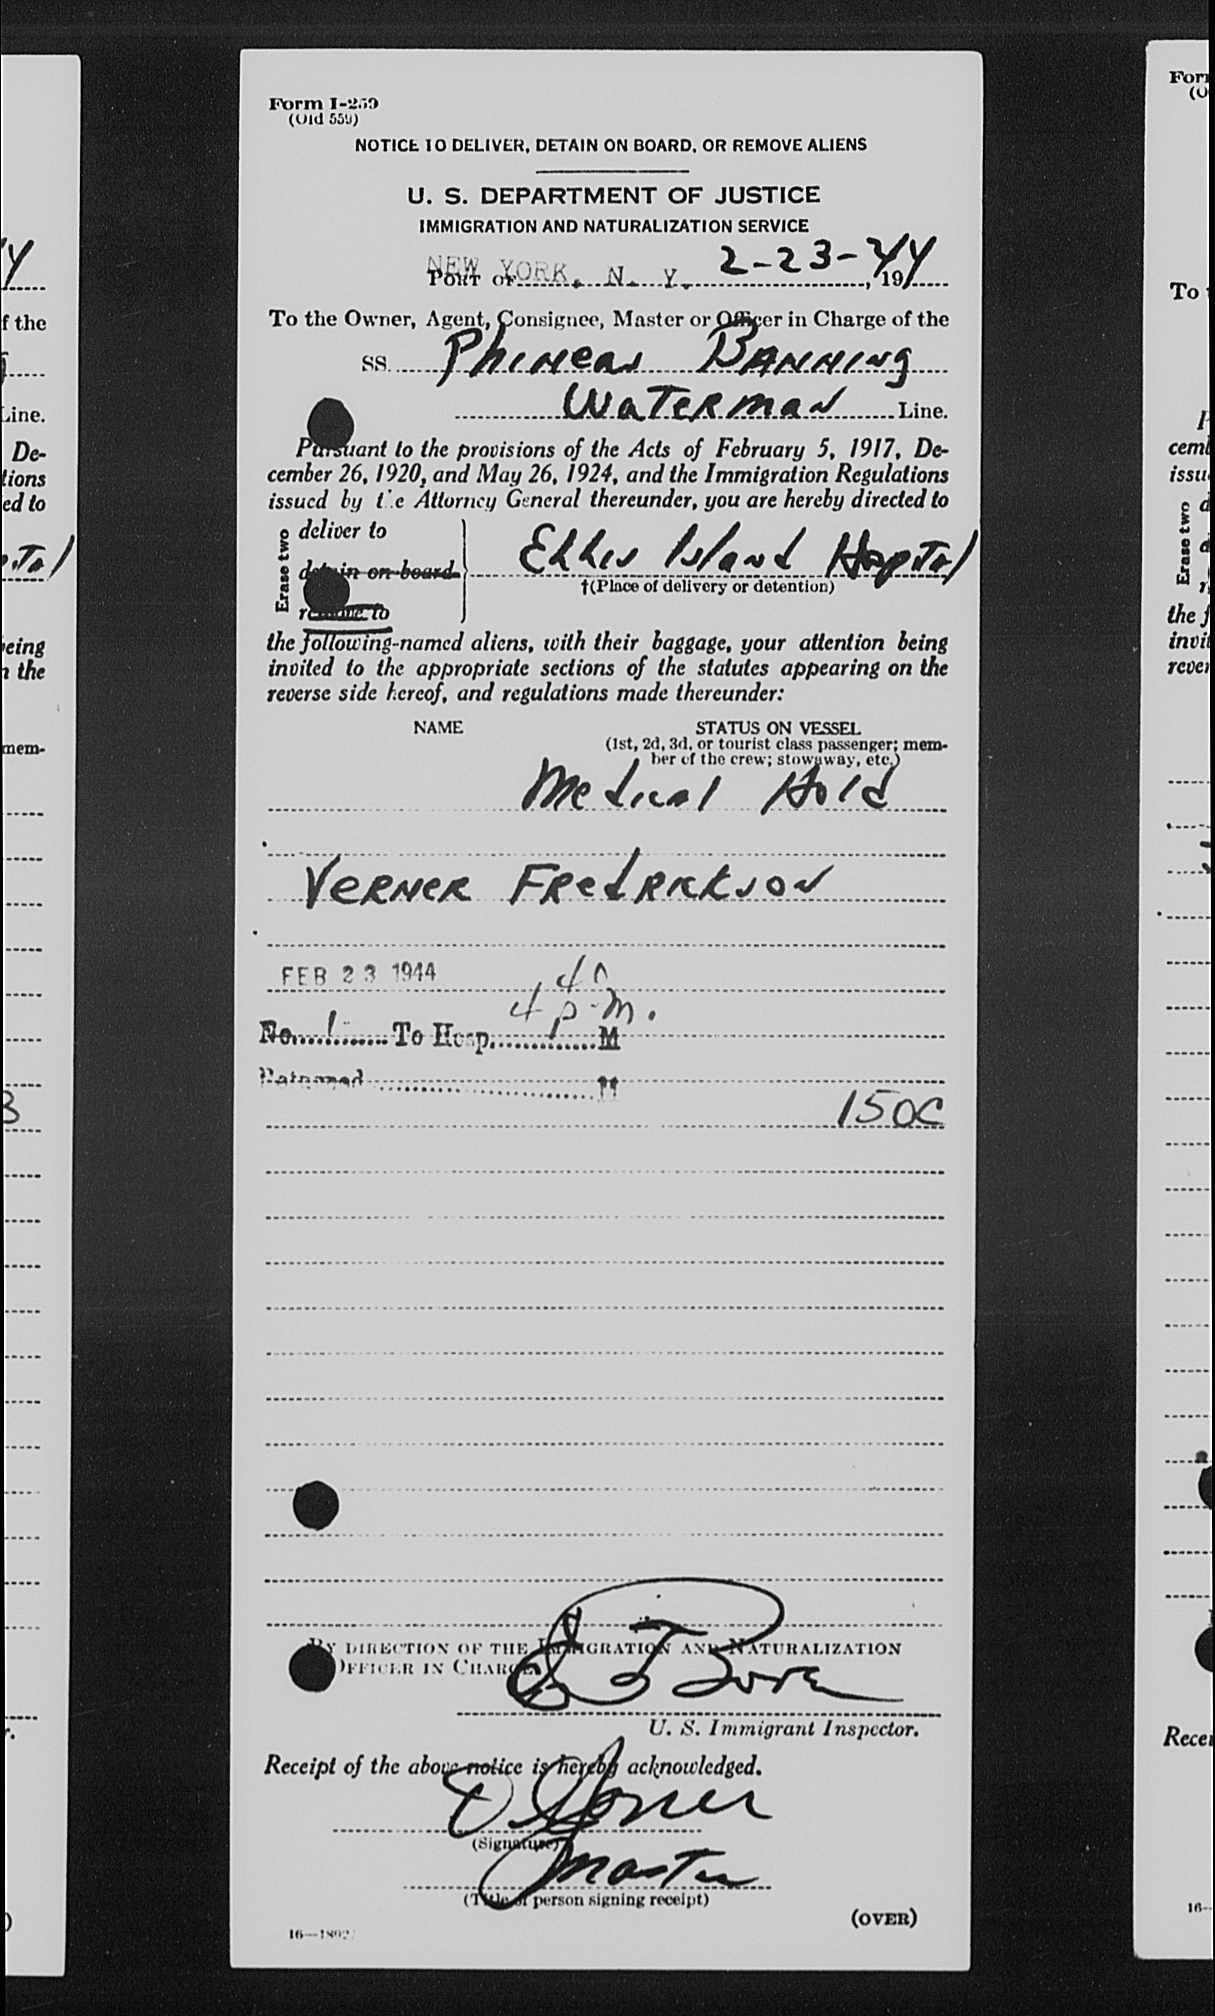 Form I-259
(Old 559)
NOTICE TO DELIVER, DETAIN ON BOARD, OR REMOVE ALIENS
U. S. DEPARTMENT OF JUSTICE
IMMIGRATION AND NATURALIZATION SERVICE
PORT OF NEW YORK, N. Y. 2-23-44, 194
To the Owner, Agent, Consignee, Master or Officer in Charge of the
SS. Phineas Banning
Waterman Line.
Pursuant to the provisions of the Acts of February 5, 1917, De-
cember 26, 1920, and May 26, 1924, and the Immigration Regulations
issued by the Attorney General thereunder, you are hereby directed to
Erase two
deliver to
detain on board
remove to
Ellis Island Hospital
†(Place of delivery or detention)
the following-named aliens, with their baggage, your attention being
invited to the appropriate sections of the statutes appearing on the
reverse side hereof, and regulations made thereunder:
NAME STATUS ON VESSEL
(1st, 2d, 3d, or tourist class passenger; mem-
ber of the crew; stowaway, etc.)
Medical Hold
Verner Fredrickson
FEB 23 1944
4 p.m.
No. 1 To Hosp. M
Returned M
150C
BY DIRECTION OF THE IMMIGRATION AND NATURALIZATION
OFFICER IN CHARGE
U. S. Immigrant Inspector.
Receipt of the above notice is hereby acknowledged.
(Signature)
Master
(Title of person signing receipt)
(OVER)